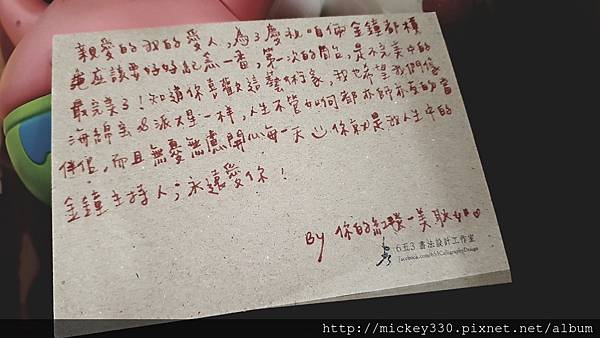 親愛的我的愛人，為了慶祝咱倆金鐘都槓
龜應該要好好紀念一番，第一次的開台，是不完美中的
最完美了！知道你喜歡這藝術家，我也希望我們像
海綿寶&派大星一樣，人生不管如何都亦師亦友的當
伴侶，而且無憂無慮開心每一天 你就是我人生中的
金鐘主持人；永遠愛你！
By 你的紅唇一美耿如
6五3 書法設計工作室
facebook.com/653CalligraphyDesign
http://mickey330.pixnet.net/album